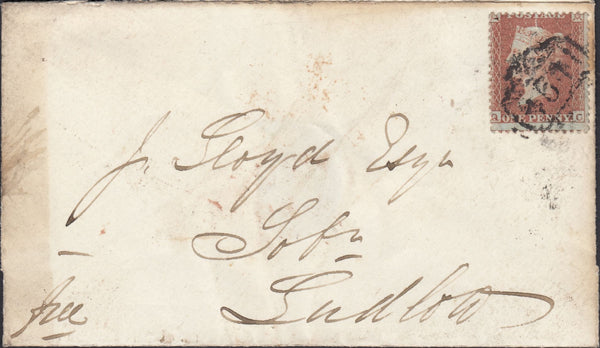 POSTAGE
ONE PENNY
A G
J. Lloyd Esqr
Solr
Ludlow
free